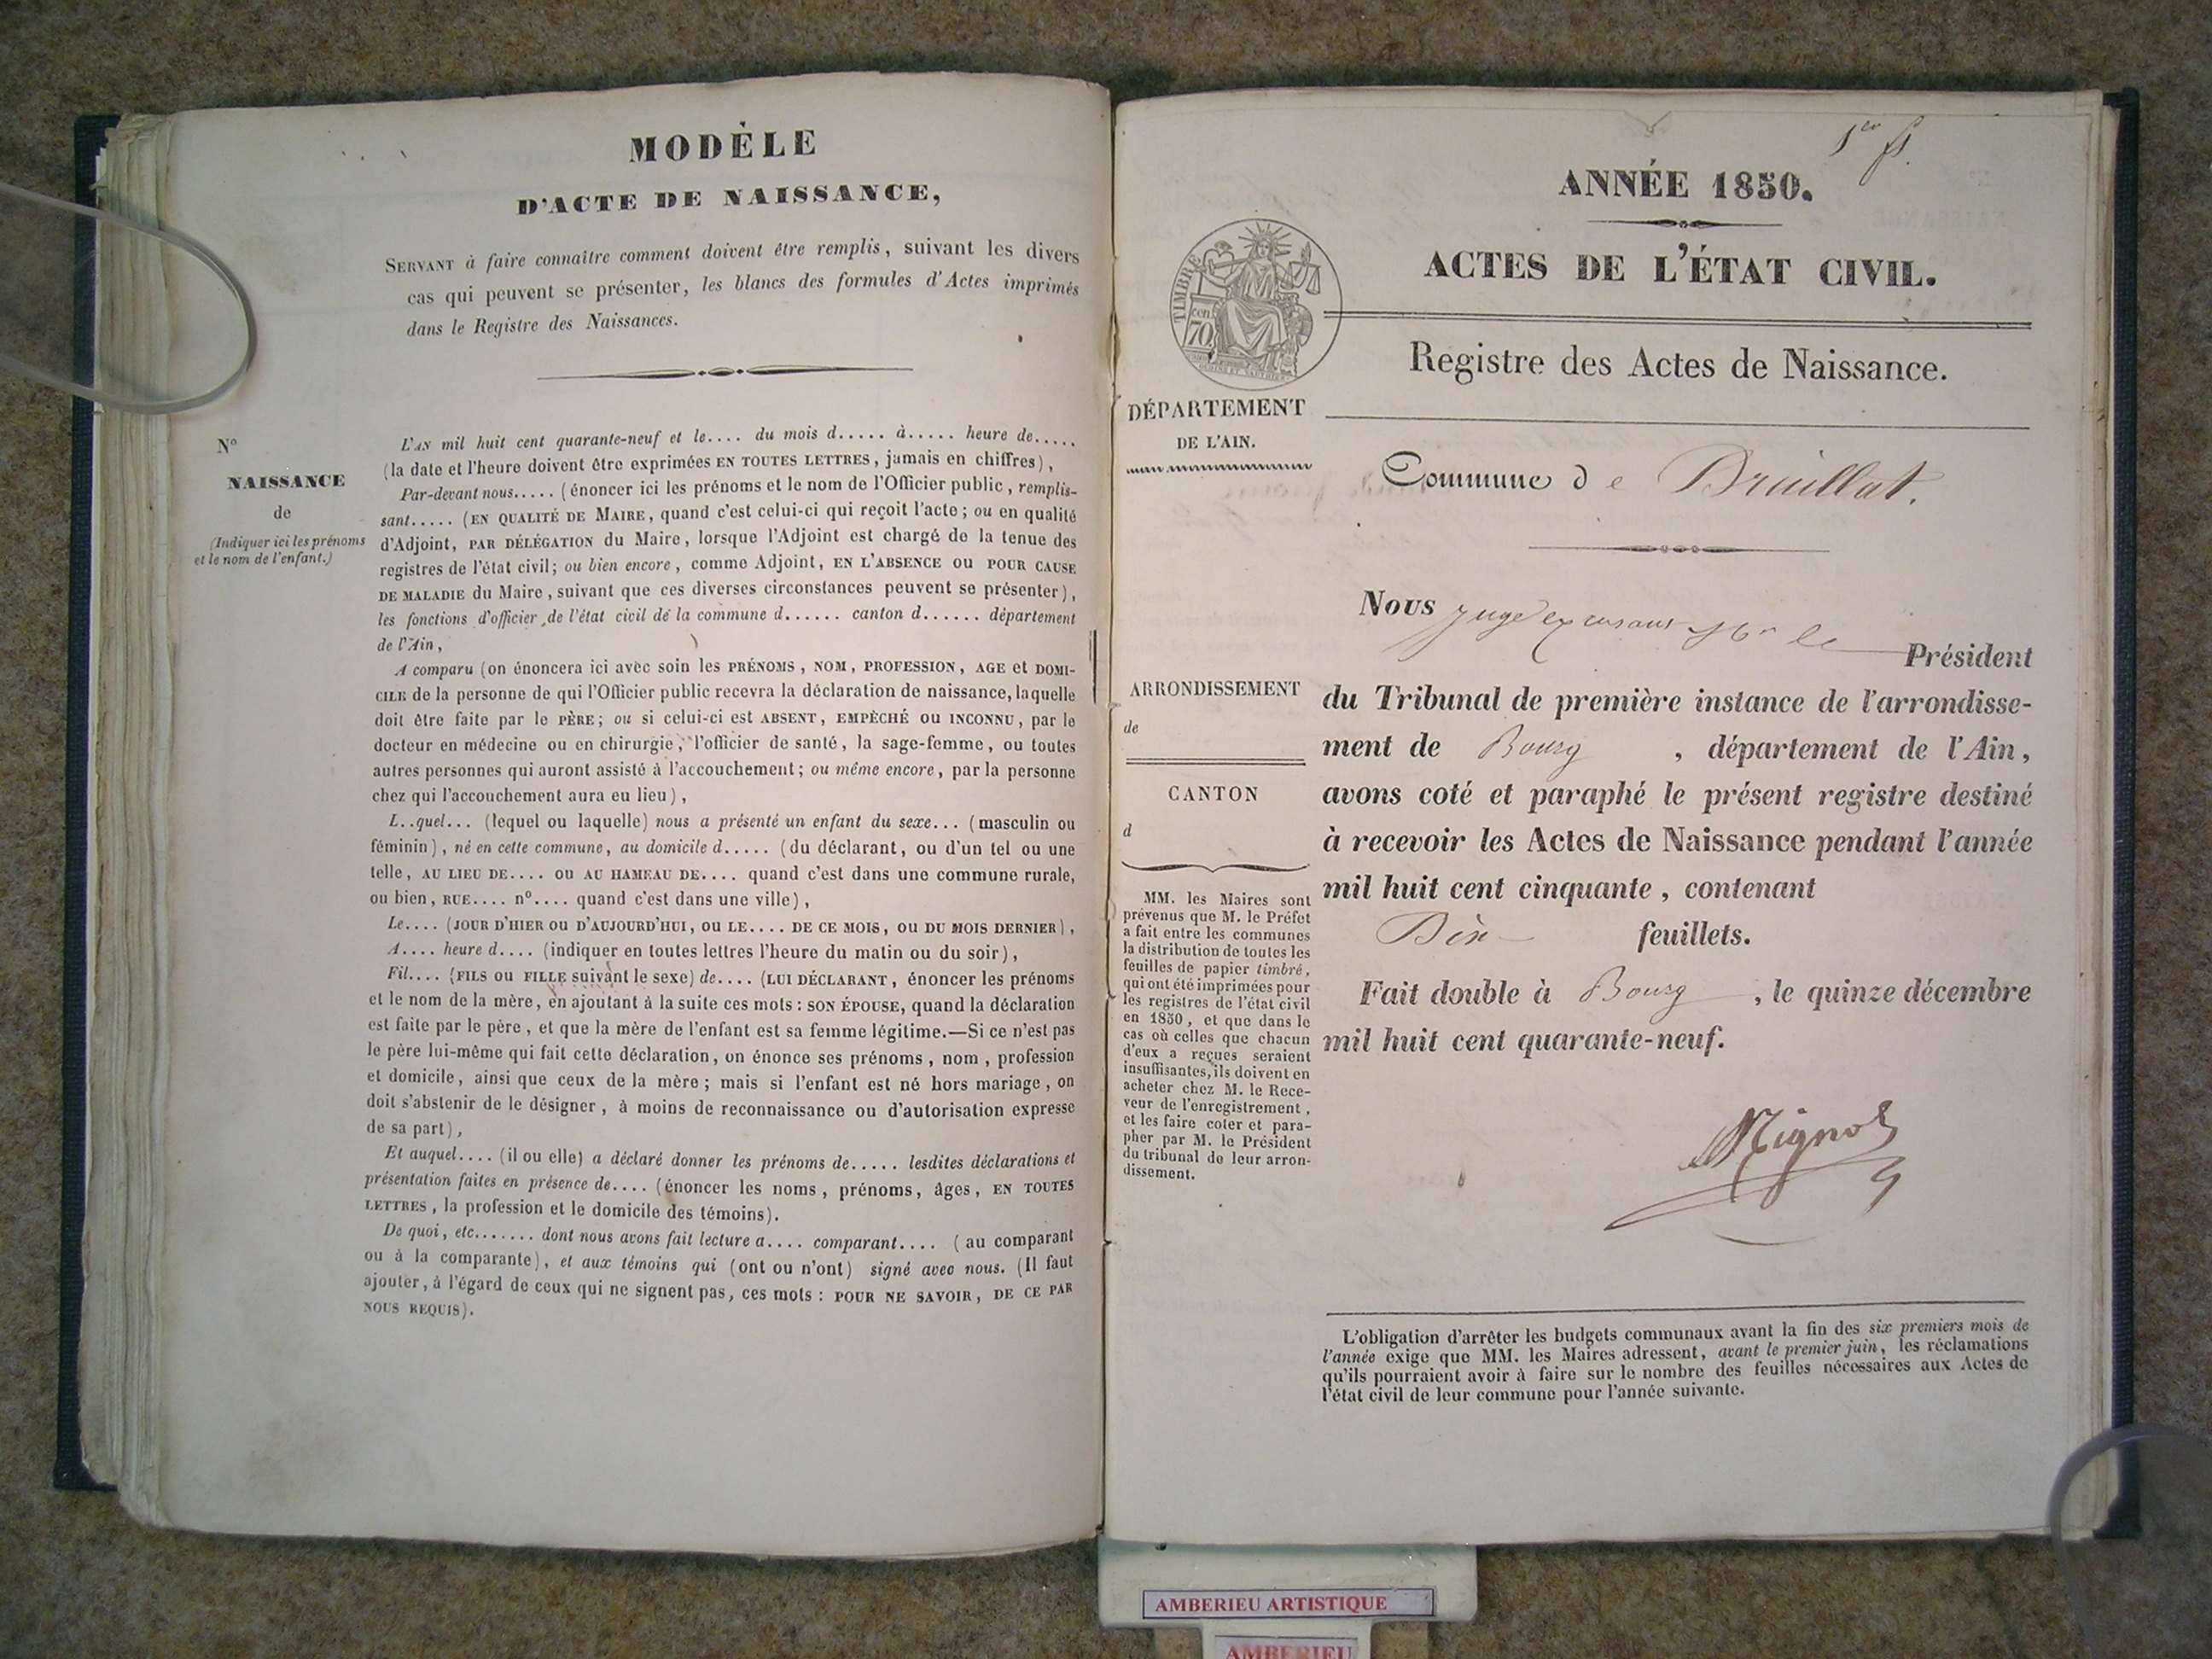 MODÈLE
D'ACTE DE NAISSANCE,
SERVANT à faire connaître comment doivent être remplis, suivant les divers
cas qui peuvent se présenter, les blancs des formules d'Actes imprimés
dans le Registre des Naissances.
N°
NAISSANCE
de
(Indiquer ici les prénoms
et le nom de l'enfant.)
L'AN mil huit cent quarante-neuf et le.... du mois d..... à..... heure de.....
(la date et l'heure doivent être exprimées EN TOUTES LETTRES, jamais en chiffres),
Par-devant nous..... (énoncer ici les prénoms et le nom de l'Officier public, remplis-
sant..... (EN QUALITÉ DE MAIRE, quand c'est celui-ci qui reçoit l'acte; ou en qualité
d'Adjoint, PAR DÉLÉGATION du Maire, lorsque l'Adjoint est chargé de la tenue des
registres de l'état civil; ou bien encore, comme Adjoint, EN L'ABSENCE OU POUR CAUSE
DE MALADIE du Maire, suivant que ces diverses circonstances peuvent se présenter),
les fonctions d'officier de l'état civil de la commune d...... canton d...... département
de l'Ain,
A comparu (on énoncera ici avec soin les PRÉNOMS, NOM, PROFESSION, AGE et DOMI-
CILE de la personne de qui l'Officier public recevra la déclaration de naissance, laquelle
doit être faite par le PÈRE; ou si celui-ci est ABSENT, EMPÊCHÉ OU INCONNU, par le
docteur en médecine ou en chirurgie, l'officier de santé, la sage-femme, ou toutes
autres personnes qui auront assisté à l'accouchement; ou même encore, par la personne
chez qui l'accouchement aura eu lieu),
L..quel... (lequel ou laquelle) nous a présenté un enfant du sexe... (masculin ou
féminin), né en cette commune, au domicile d..... (du déclarant, ou d'un tel ou une
telle, AU LIEU DE.... OU AU HAMEAU DE.... quand c'est dans une commune rurale,
ou bien, RUE.... n°.... quand c'est dans une ville),
Le.... (JOUR D'HIER OU D'AUJOURD'HUI, OU LE.... DE CE MOIS, OU DU MOIS DERNIER),
A.... heure d.... (indiquer en toutes lettres l'heure du matin ou du soir),
Fil.... (FILS OU FILLE suivant le sexe) de.... (LUI DÉCLARANT, énoncer les prénoms
et le nom de la mère, en ajoutant à la suite ces mots: SON ÉPOUSE, quand la déclaration
est faite par le père, et que la mère de l'enfant est sa femme légitime.—Si ce n'est pas
le père lui-même qui fait cette déclaration, on énonce ses prénoms, nom, profession
et domicile, ainsi que ceux de la mère; mais si l'enfant est né hors mariage, on
doit s'abstenir de le désigner, à moins de reconnaissance ou d'autorisation expresse
de sa part),
Et auquel.... (il ou elle) a déclaré donner les prénoms de..... lesdites déclarations et
présentation faites en présence de.... (énoncer les noms, prénoms, âges, EN TOUTES
LETTRES, la profession et le domicile des témoins).
De quoi, etc....... dont nous avons fait lecture a.... comparant.... (au comparant
ou à la comparante), et aux témoins qui (ont ou n'ont) signé avec nous. (Il faut
ajouter, à l'égard de ceux qui ne signent pas, ces mots: POUR NE SAVOIR, DE CE PAR
NOUS REQUIS).
1er f.
ANNÉE 1850.
ACTES DE L'ÉTAT CIVIL.
Registre des Actes de Naissance.
TIMBRE
cen
70
DÉPARTEMENT
DE L'AIN.
Commune de Druillat.
Nous Juge excusant Mr le Président
du Tribunal de première instance de l'arrondisse-
ment de Bourg, département de l'Ain,
avons coté et paraphé le présent registre destiné
à recevoir les Actes de Naissance pendant l'année
mil huit cent cinquante, contenant
Dix feuillets.
Fait double à Bourg, le quinze décembre
mil huit cent quarante-neuf.
ARRONDISSEMENT
de
CANTON
d
MM. les Maires sont
prévenus que M. le Préfet
a fait entre les communes
la distribution de toutes les
feuilles de papier timbré,
qui ont été imprimées pour
les registres de l'état civil
en 1850, et que dans le
cas où celles que chacun
d'eux a reçues seraient
insuffisantes, ils doivent en
acheter chez M. le Rece-
veur de l'enregistrement,
et les faire coter et para-
pher par M. le Président
du tribunal de leur arron-
dissement.
L'obligation d'arrêter les budgets communaux avant la fin des six premiers mois de
l'année exige que MM. les Maires adressent, avant le premier juin, les réclamations
qu'ils pourraient avoir à faire sur le nombre des feuilles nécessaires aux Actes de
l'état civil de leur commune pour l'année suivante.
AMBERIEU ARTISTIQUE
AMBERIEU